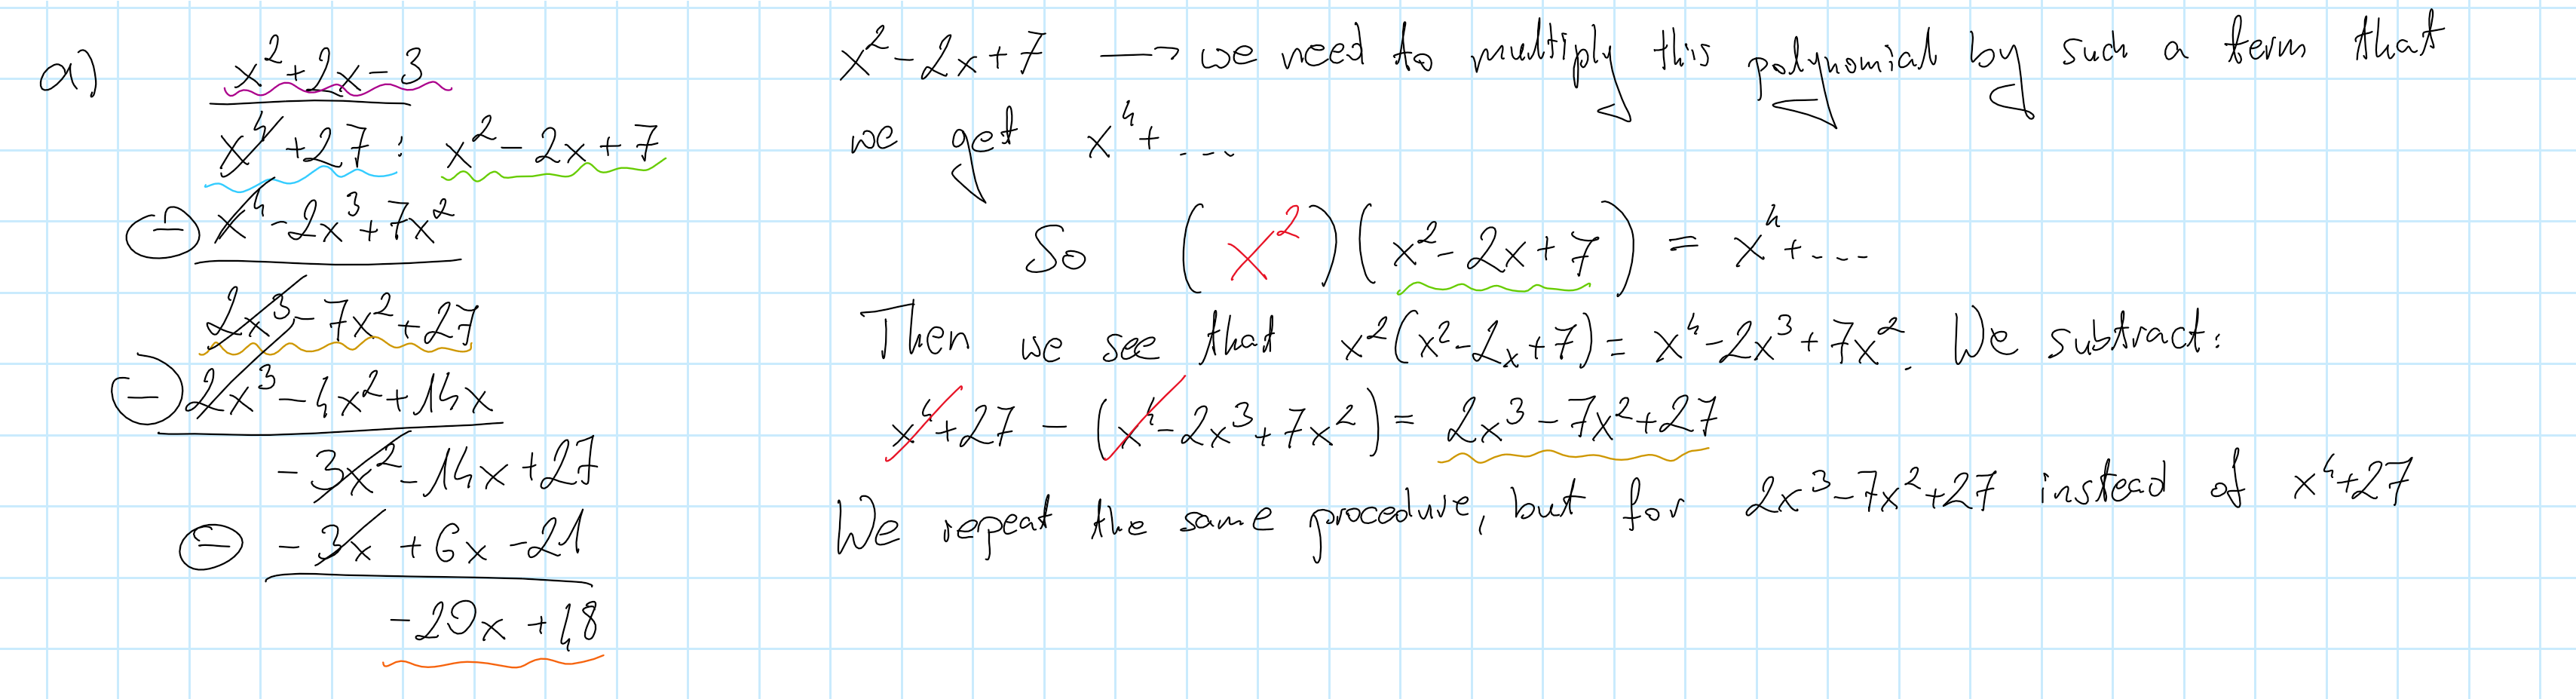 a)
x²+2x-3
x⁴+27 : x²-2x+7
⊖ x⁴-2x³+7x²
2x³-7x²+27
⊖ 2x³-4x²+14x
-3x²-14x+27
⊖ -3x+6x-21
-20x+48
x²-2x+7 → we need to multiply this polynomial by such a term that
we get x⁴+...
So (x²)(x²-2x+7) = x⁴+...
Then we see that x²(x²-2x+7) = x⁴-2x³+7x². We subtract:
x⁴+27 - (x⁴-2x³+7x²) = 2x³-7x²+27
We repeat the same procedure, but for 2x³-7x²+27 instead of x⁴+27